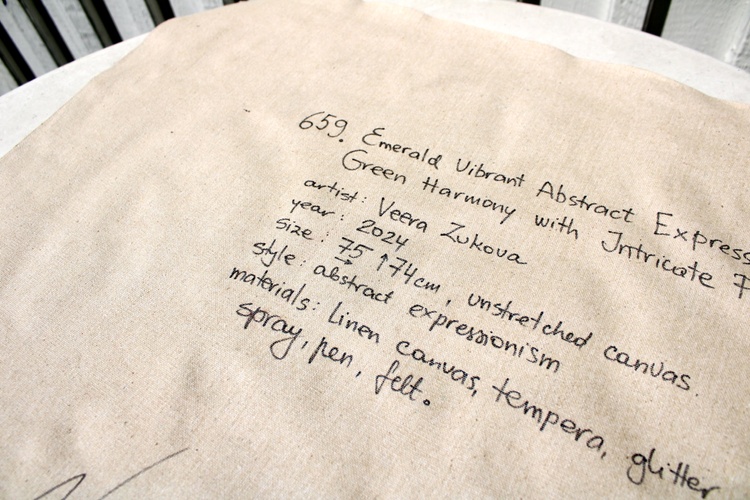 659. Emerald Vibrant Abstract Express
Green Harmony with Intricate
artist: Veera Zukova
year: 2024
size: 75 ↑74cm, unstretched canvas.
style: abstract expressionism
materials: linen canvas, tempera, glitter
spray, pen, felt.